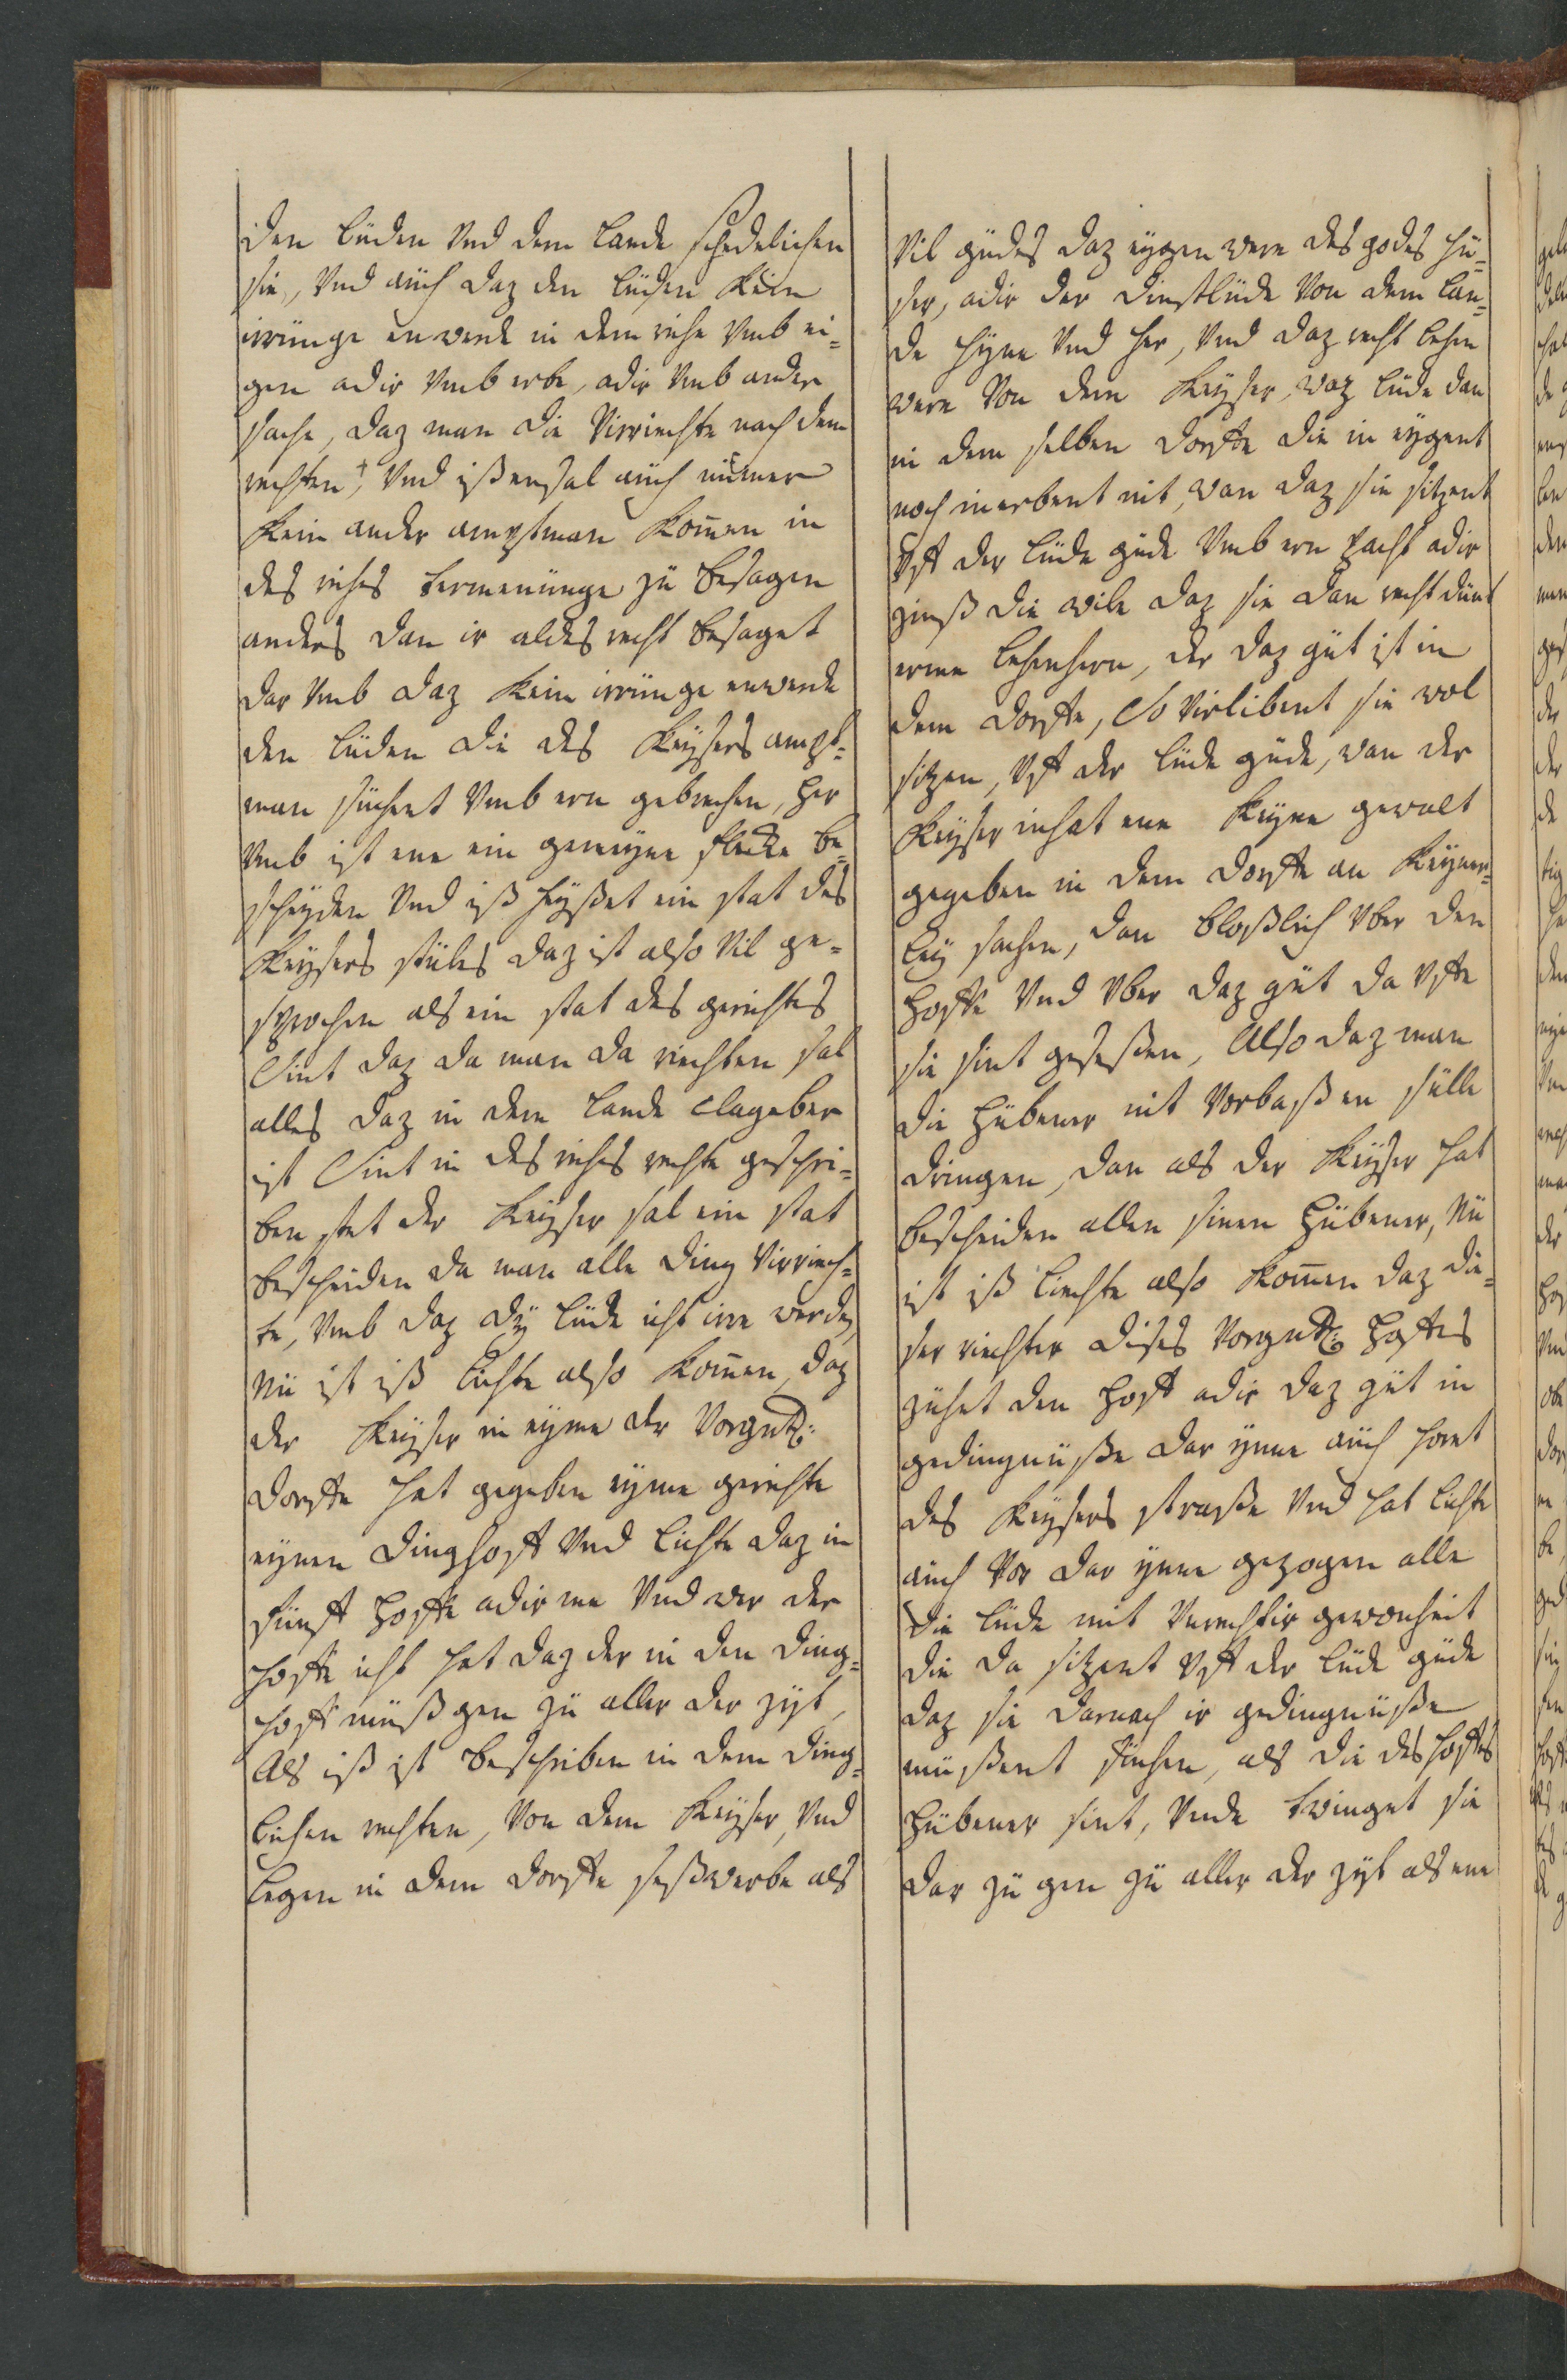 den lüden Vnd dem Lande schedelichen
sie, Vnd auch daz den lüden kein
irrunge enwerde in dem riche Vmb ei-
gen adir Vmb erbe, adir Vmb ander
sache, daz man die Virriechte nach dem
rechten †, Vnd iß ensal auch nümer
kein ander amptman komen in
des riches termenünge zü besagen
anders dan ir aldes recht besaget
dar Vmb daz kein irrünge enwerde
den lüden die des Keysers ampt-
man süchent Vmb ern gebrechen, her
Vmb ist ene ein gemeyne flecke be-
scheyden Vnd iß heyßet ein stat des
Keysers stüles daz ist also Vil ge-
sprochen als ein stat des gerichtes
Sint daz da man da riechten sal
alles daz in dem lande clageber
ist Sint in des riches rechte geschri-
ben stet der Keyser sal ein stat
bescheiden da man alle ding Virriech-
te, Vmb daz dÿ lüde icht irre werden,
Nü ist iß lichte also komen, daz
der Keyser in eyme der Vorgnten:
dorffe hat gegeben eyme gerichte
eynen dinghoff Vnd lichte daz in
fünff hoffe adir me Vnd wer der
hoffe icht hat daz der in den ding-
hoff müß gen zü aller der zyt,
Als iß ist beschriben in dem ding-
lichen rechten, Von dem Keyser, Vnd
legen in dem dorffe seßwerbe als
Vil gudes daz eygen were des godes hü-
ser, adir der dinstlüde Von dem lan-
de hyne Vnd her, Vnd daz recht lehen
were Von dem Keyser, waz lüde dan
in dem selben dorffe die in eygent
noch in erbent nit, wan daz sie sitzent
Vff der lüde güde Vmb ern pacht adir
zinß die wile daz sie dan recht dünt
erme lehenhern, der daz güt ist in
dem dorffe, So Virlibent sie wol
sitzen, Vff der lüde güde, wan der
Keyser inhat ene keyne gewalt
gegeben in dem dorffe an keyner-
ley sachen, dan bloßlich Vber den
hoffe Vnd Vber daz güt da Vffe
sie sint geseßen, Also daz man
die hübener nit Vorbaß en sülle
dringen, dan als der Keyser hat
bescheiden allen sinen hübener, Nü
ist iß liechte also komen daz die-
ser riechter dises Vorgnten hoffes
zühet den hoff adir daz güt in
gedingnüße dar ynne auch horet
des Keysers straße Vnd hat lichte
auch Vor dar ynne gezogen alle
die lüde mit Vnrechtir gewonheit
die da sitzent Vff der lüde güde
daz sie darnach ir gedingnüße
müßent süchen, als die des hoffes
hübener sint, Vnde twinget sie
dar zü gen zü aller der zyt als ene